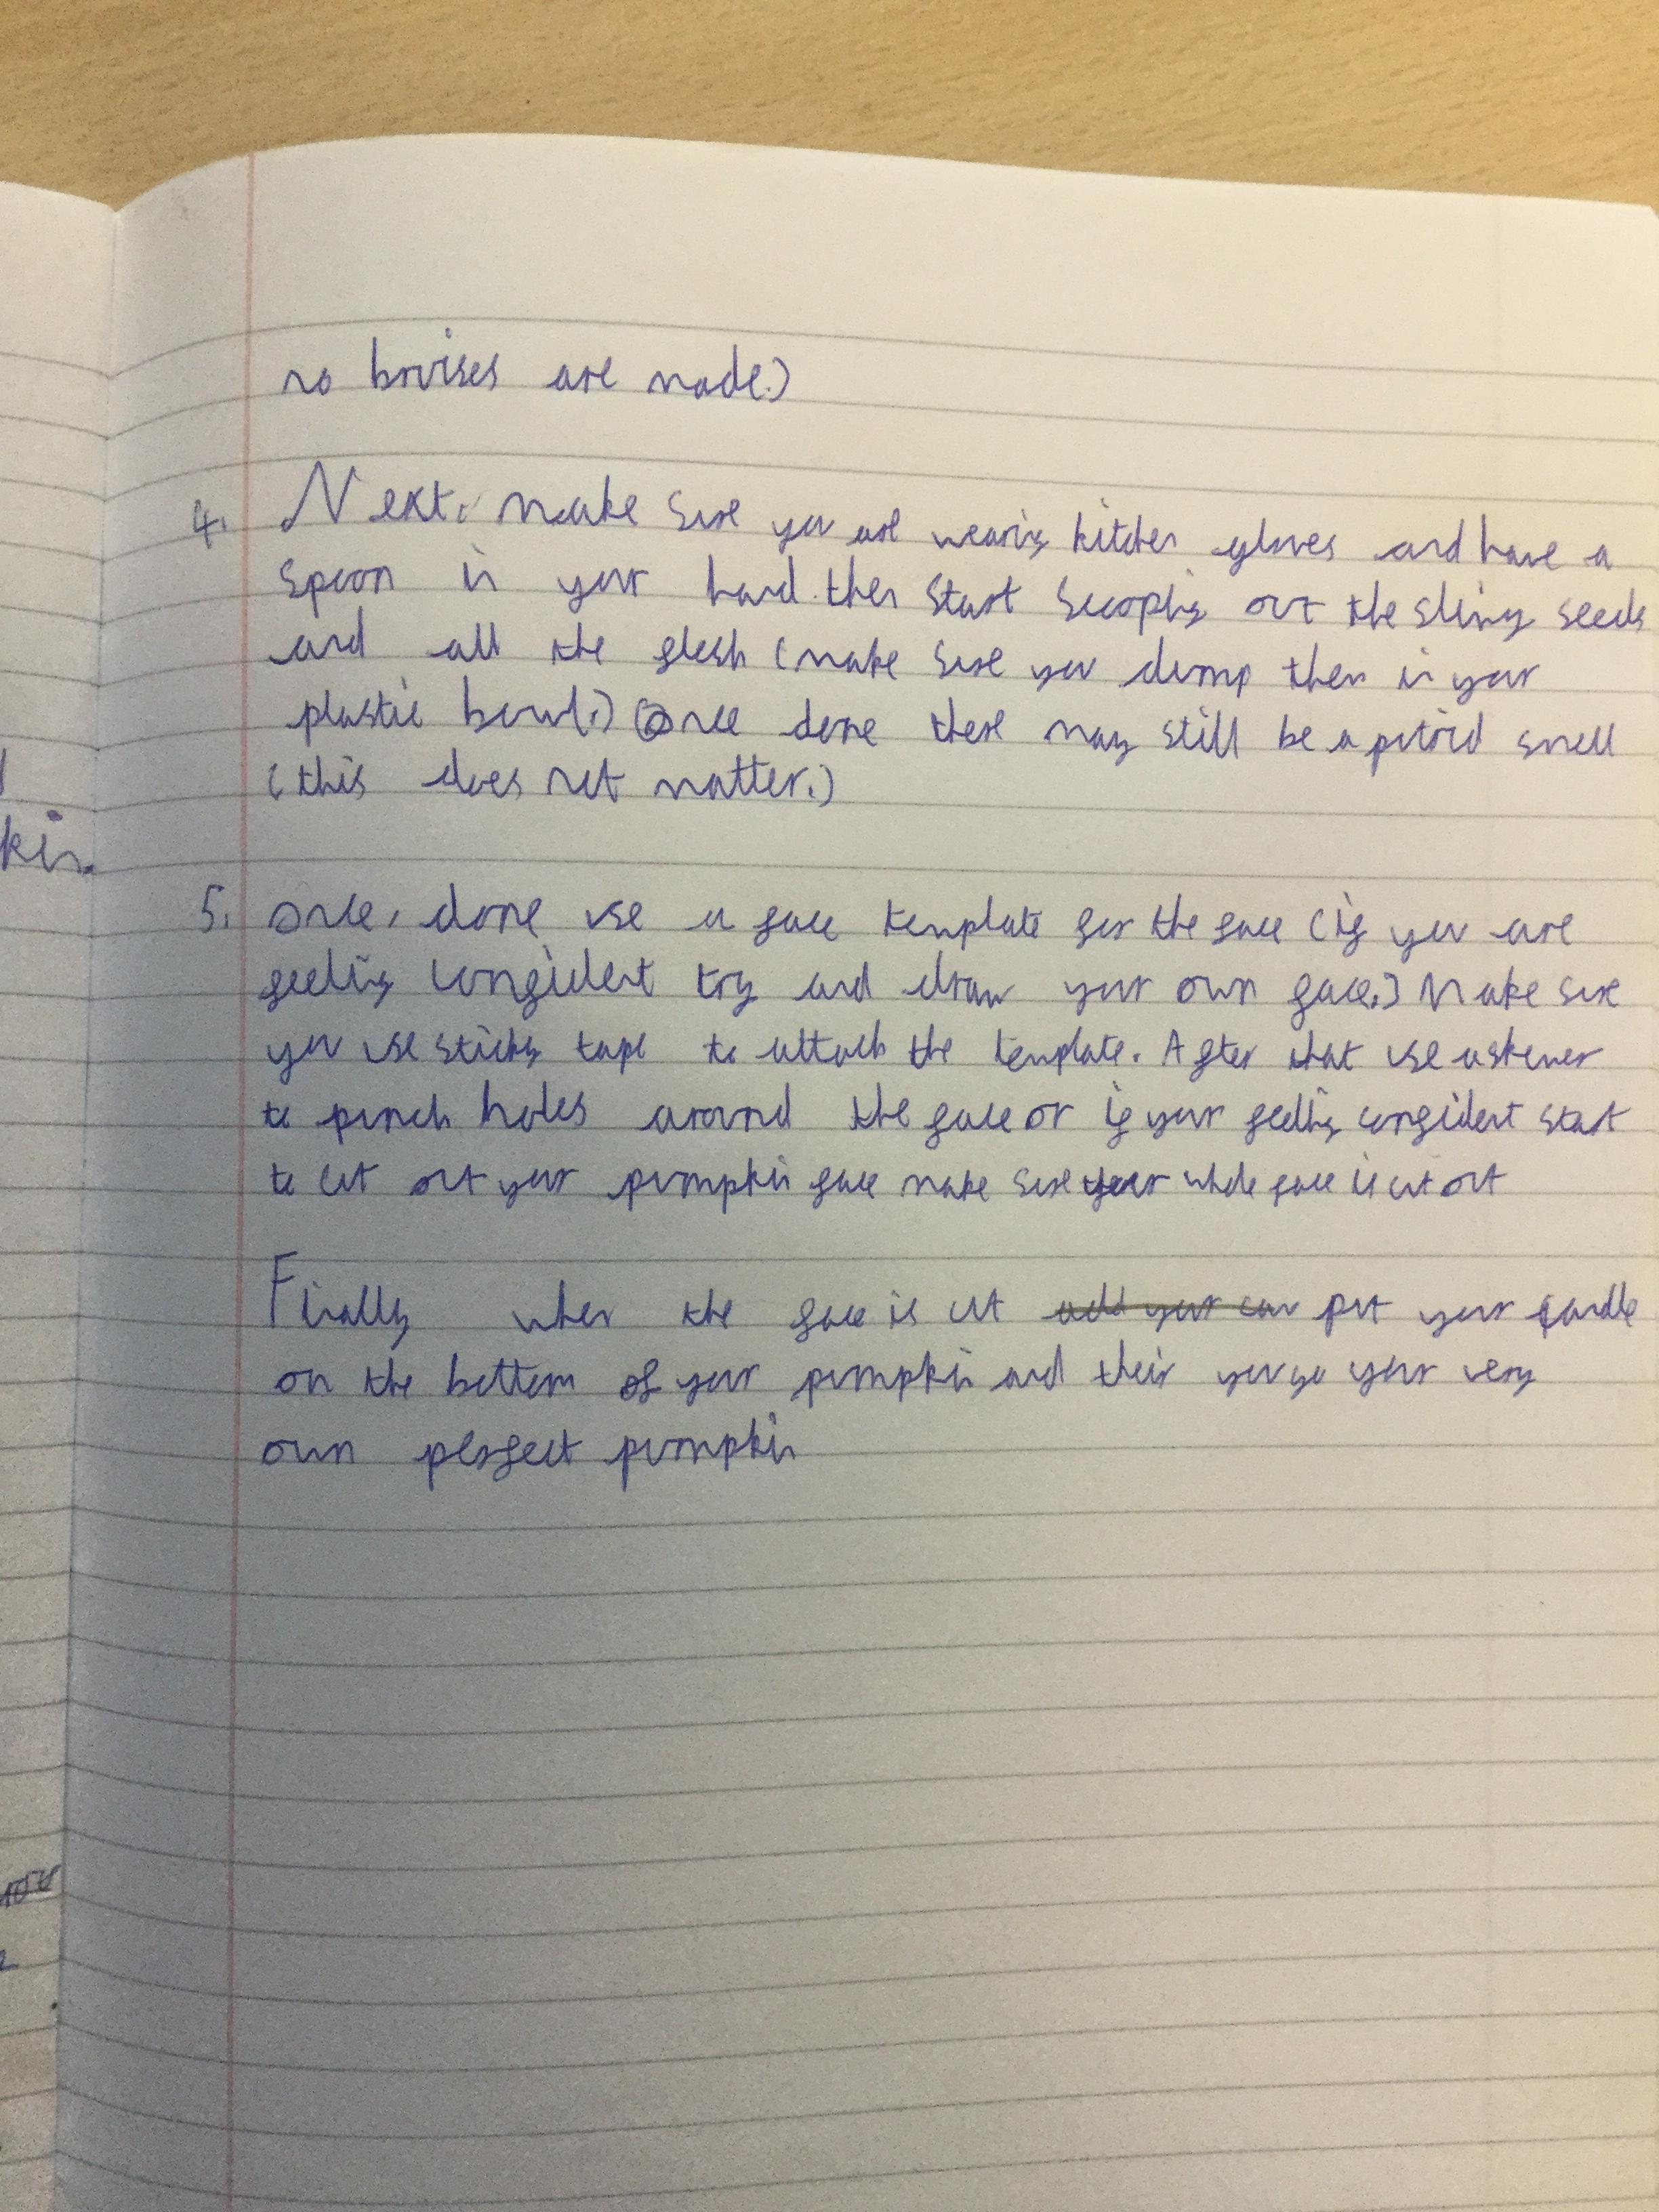 no bruises are made.)
4. Next, make sure you are wearing kitchen gloves and have a
spoon in your hand. then start scooping out the slimy seeds
and all the flesh (make sure you dump them in your
plastic bowl.) Once done there may still be a putrid smell
(this does not matter.)
kin.
5. Once, done use a face template for the face (if you are
feeling confident try and draw your own face.) Make sure
you use sticky tape to attach the template. After that use a skewer
to punch holes around the face or if your feeling confident start
to cut out your pumpkin face make sure your whole face is cut out
Finally when the face is cut add your can put your candle
on the bottom of your pumpkin and their you go your very
own perfect pumpkin